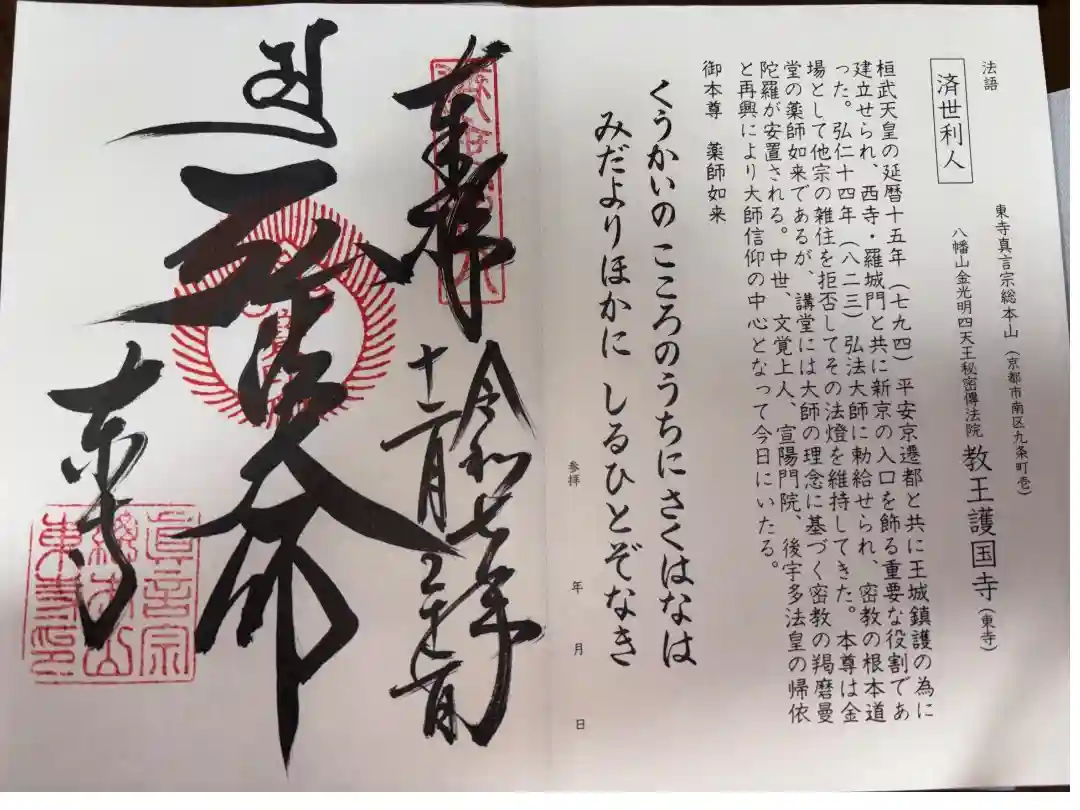 法語
済世利人
東寺真言宗総本山(京都市南区九条町壱)
八幡山金光明四天王秘密傳法院 教王護国寺(東寺)
桓武天皇の延暦十五年(七九四)平安京遷都と共に王城鎮護の為に
建立せられ、西寺・羅城門と共に新京の入口を飾る重要な役割であ
った。弘仁十四年(八二三)弘法大師に勅給せられ、密教の根本道
場として他宗の雑住を拒否してその法燈を維持してきた。本尊は金
堂の薬師如来であるが、講堂には大師の理念に基づく密教の羯磨曼
陀羅が安置される。中世、文覚上人、宣陽門院、後宇多法皇の帰依
と再興により大師信仰の中心となって今日にいたる。
御本尊 薬師如来
くうかいの こころのうちに さくはなは
みだよりほかに しるひとぞなき
参拝 年 月 日
奉拝
令和七年
十二月
東寺
眞言宗
總本山
東寺印